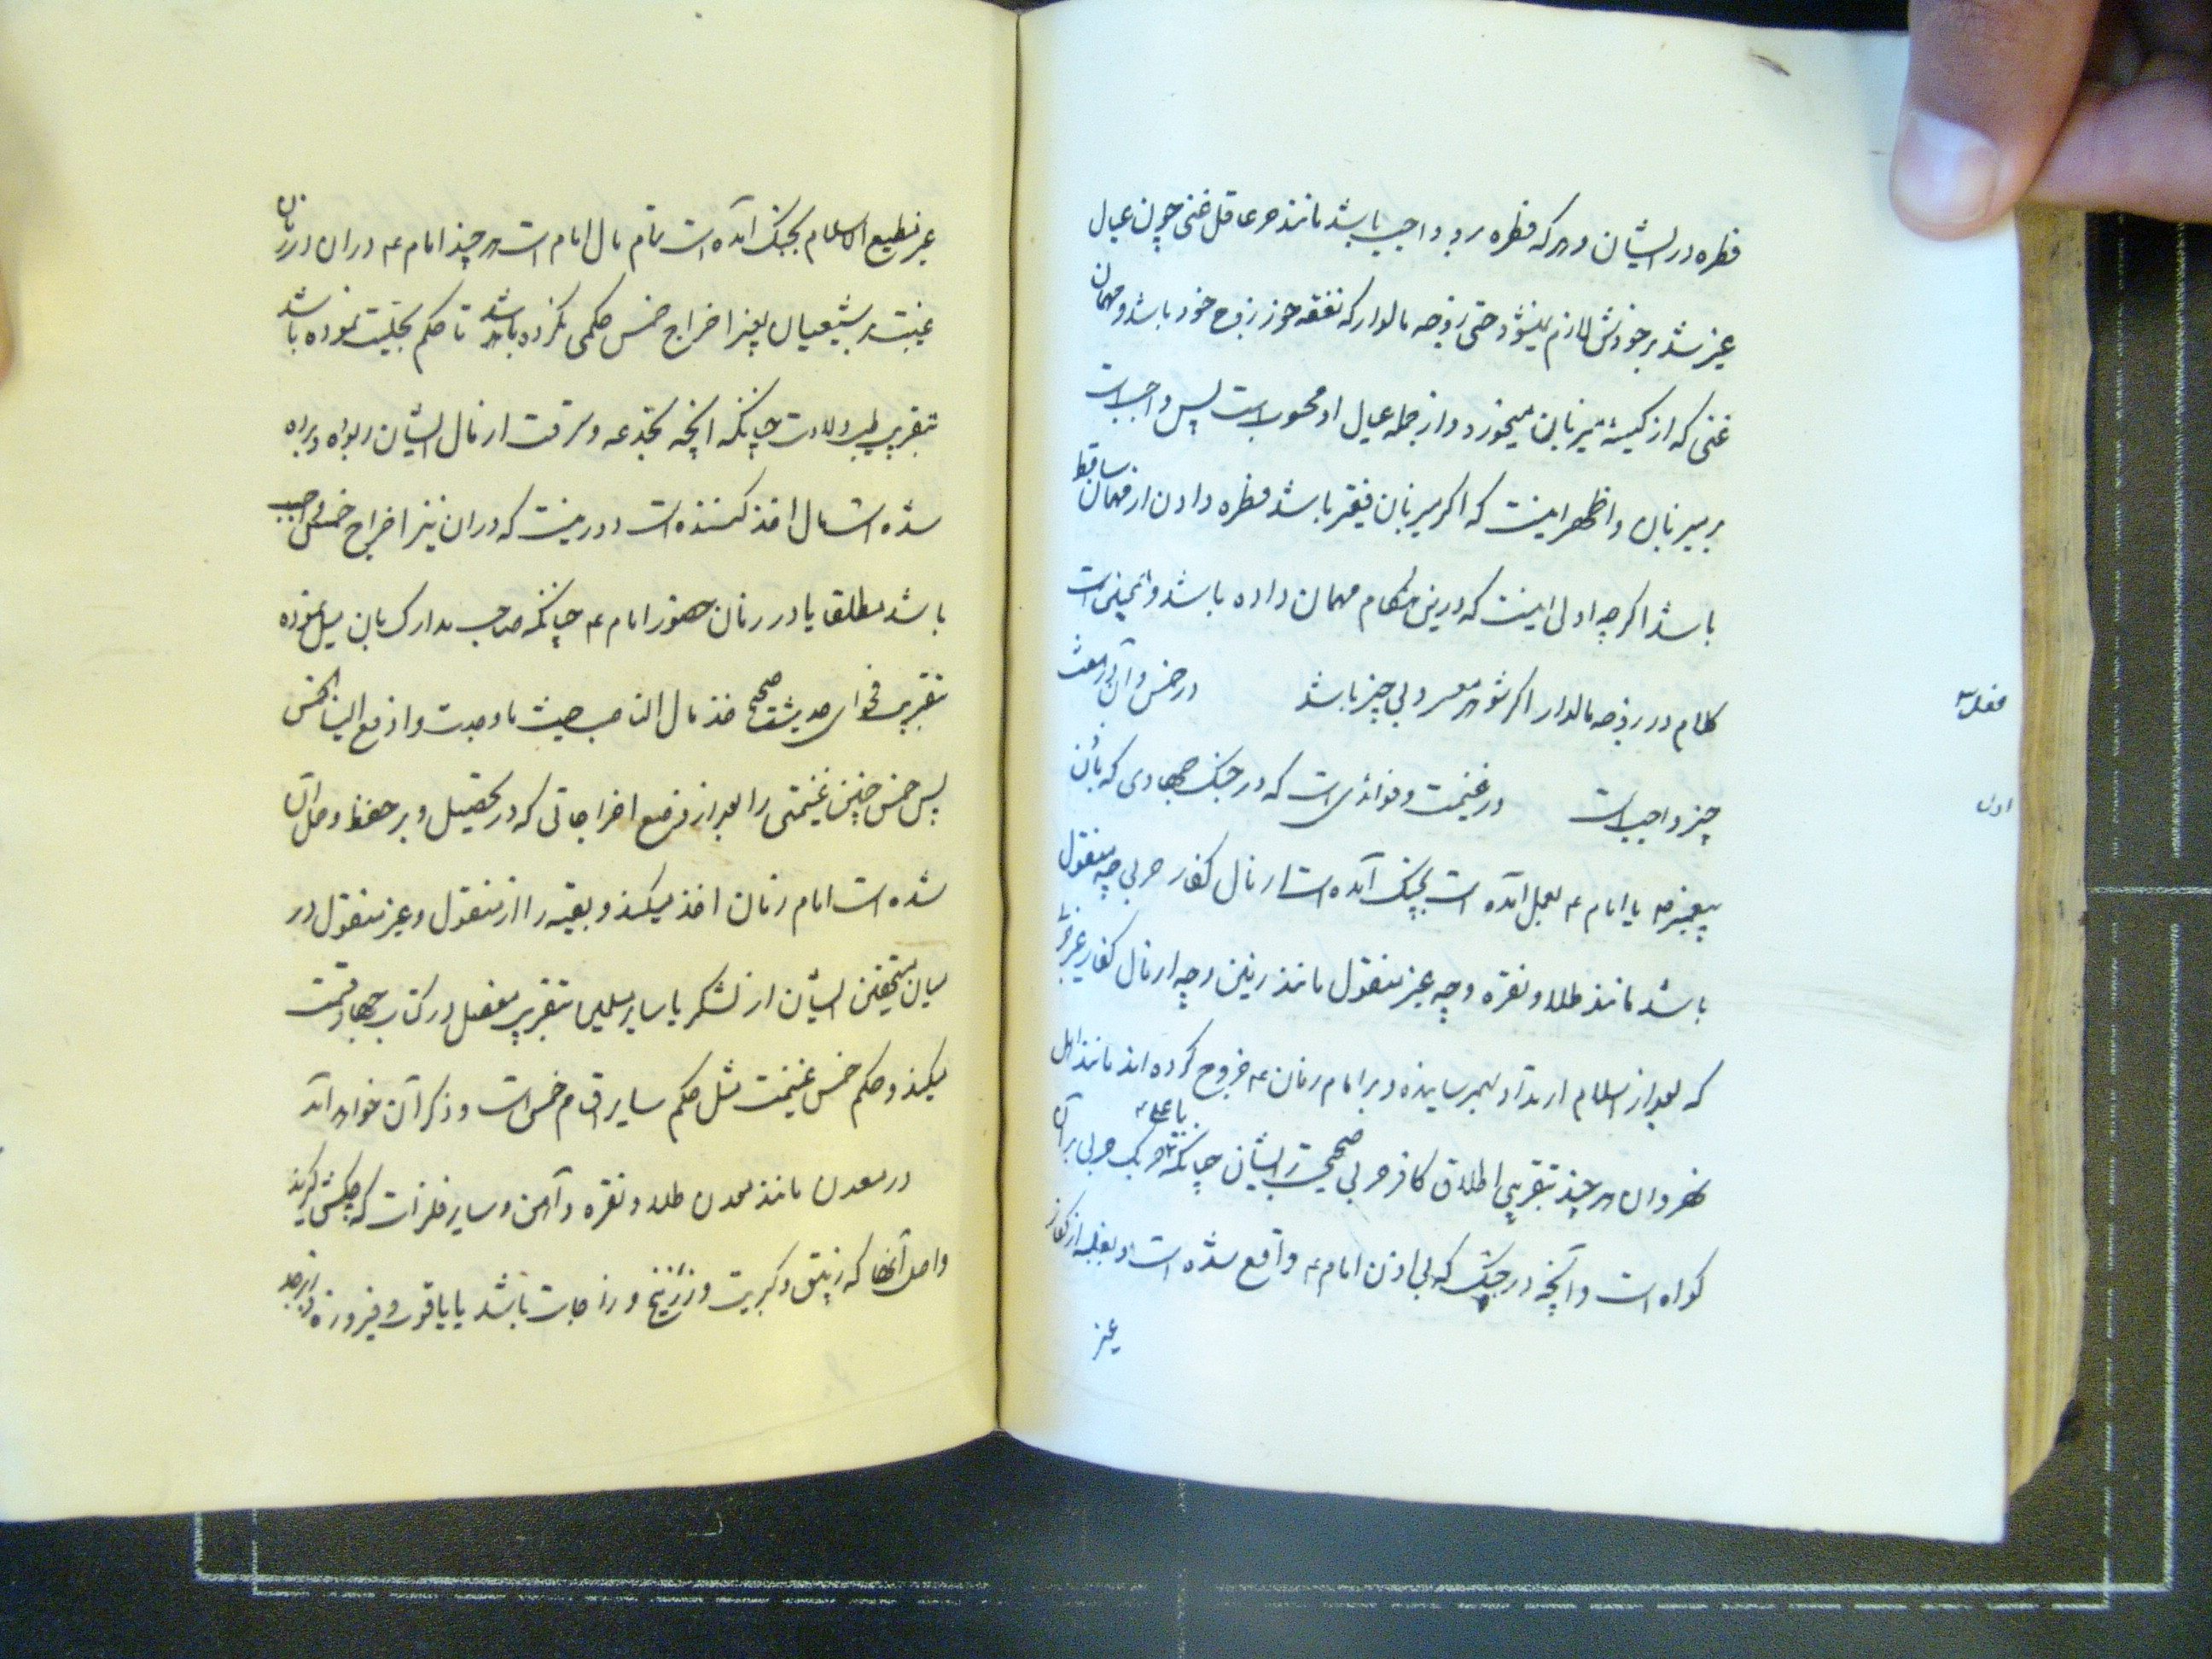 فطره در ایشان و هر که فطره برو واجب باشد مانند حر عاقل غنی چون عیال
غیر شد بر خودش لازم نمیشود حتی زوجه مالدار که نفقه خور زوج خود باشد و مهمان
غنی که از کیسه میزبان میخورد و از جمله عیال او محسوبست پس واجبست
بر میزبان و اظهر اینست که اگر میزبان فقیر باشد فطره دادن از مهمان ساقط
باشد اگر چه اولی اینست که درین هنگام مهمان داده باشد و همچنین است
کلام در زوجه مالدار اگر شوهر معسر و بی چیز باشد در خمس و آن در هفت
فصل
چیز واجبست در غنیمت و فوائدی است که در جنگ جهادی که باذن
اول
پیغمبر ص یا امام ع بعمل آمده است بچنگ آمده است از مال کفار حربی چه منقول
باشد مانند طلا و نقره و چه غیر منقول مانند زمین و چه از مال کفار غیر
که بعد از اسلام ارتداد بهم رسانیده و بر امام زمان ع خروج کرده اند مانند اهل
نهروان هر چند بتقریب اطلاق کافر حربی صحیح بر ایشان چنانکه حربک حربی بر آن
یا علی
گواه است و آنچه در جنگ که بی اذن امام ع واقع شده است و بغلبه از کفار
غیر
غیر مطیع الاسلام بچنگ آمده است تمام مال امام است هر چند امام ع در آن در زمان
غیبت بر شیعیان بغیر اخراج خمس حکمی نکرده باشد تا حکم بحلیت نموده باشد
بتقریب طیب ولادت چنانکه آنچه بخدعه و سرقت از مال ایشان ربوده و برده
شده است مال اخذ کننده است و درینست که در آن نیز اخراج خمس واجب
باشد مطلقا یا در زمان حضور امام ع چنانکه صاحب مدارک بان میل نموده
بتقریب فحوای حدیث صحیح خذ مال الناصب حیث ما وجدت و ادفع الینا الخمس
پس خمس چنین غنیمتی را بعد از وضع اخراجاتی که در تحصیل و بر حفظ و حمل آن
شده است امام زمان اخذ میکند و بقیه را از منقول و غیر منقول در
میان مستحقین ایشان از لشکر یا سایر مسلمین بتقریب مفصل در کتاب جهاد قسمت
میکند و حکم خمس غنیمت مثل حکم سایر اقسام خمس است و ذکر آن خواهد آمد
در معدن مانند معدن طلا و نقره و آهن و سایر فلزات که چکش گیرند
و اصل آنها که زیبق و کبریت و زرنیخ و زاجات باشد یا یاقوت و فیروزه و زبرجد